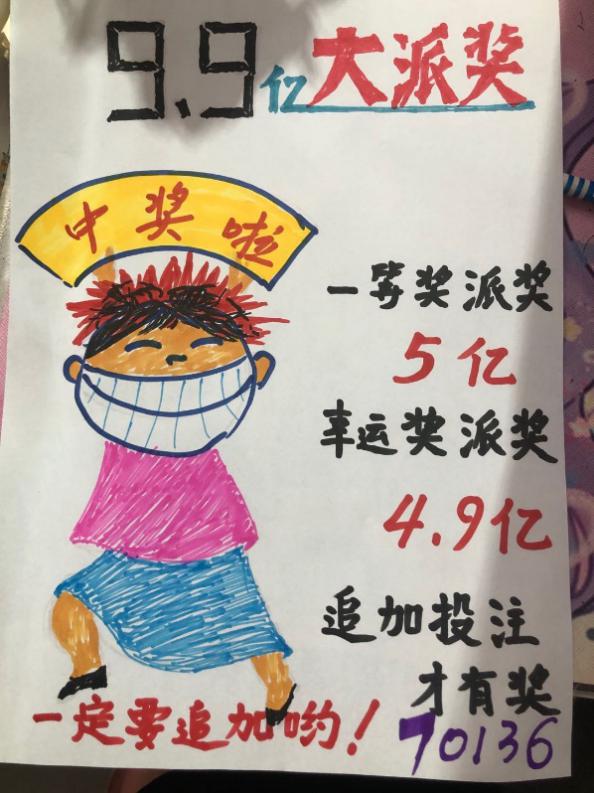 9.9亿大派奖
中奖啦
一等奖派奖
5亿
幸运奖派奖
4.9亿
追加投注
才有奖
一定要追加哟！
70136